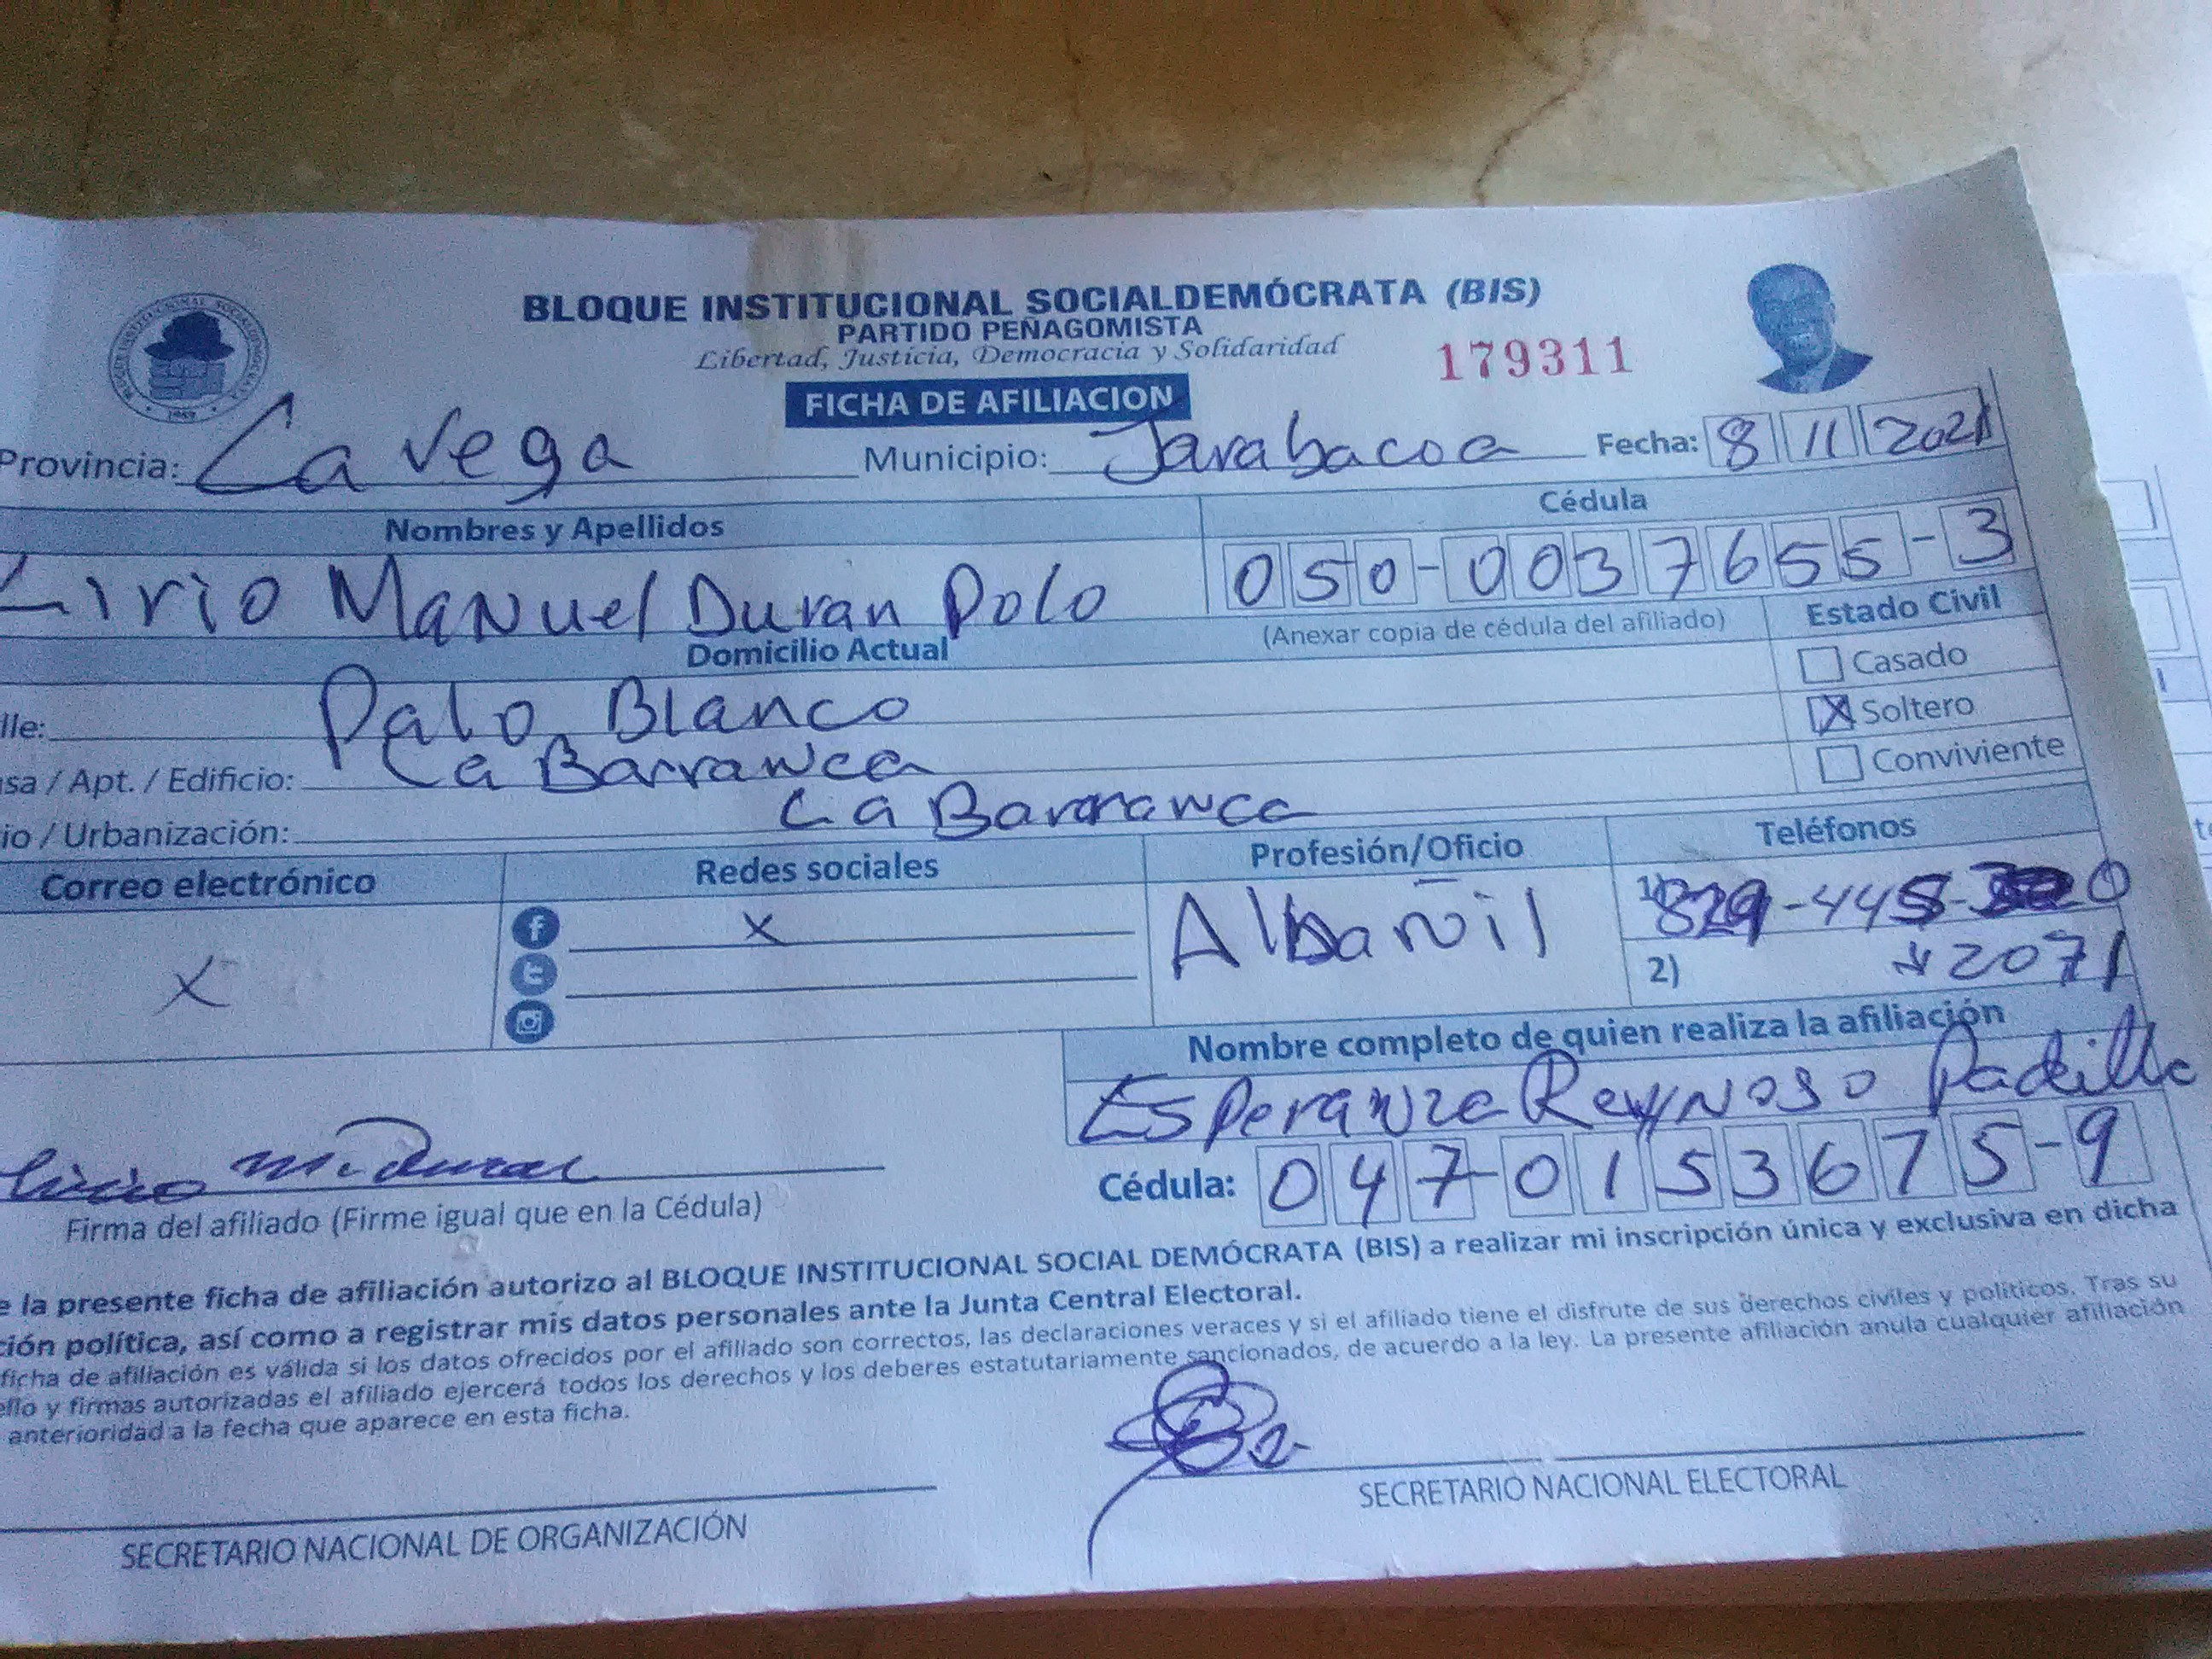 BLOQUE INSTITUCIONAL SOCIALDEMÓCRATA (BIS)
PARTIDO PEÑAGOMISTA
Libertad, Justicia, Democracia y Solidaridad
179311
FICHA DE AFILIACION
Provincia: La Vega Municipio: Jarabacoa Fecha: 8 11 2021
Nombres y Apellidos Cédula
Lirio Manuel Duran Polo 050-0037655-3
Domicilio Actual (Anexar copia de cédula del afiliado) Estado Civil
Casado
lle: Palo Blanco X Soltero
sa / Apt. / Edificio: La Barranca Conviviente
io / Urbanización: La Barranca
Correo electrónico Redes sociales Profesión/Oficio Teléfonos
X X Albañil 1) 829-445-
2) 2071
Nombre completo de quien realiza la afiliación
Esperanza Reynoso Padilla
Lirio M. Duran Cédula: 047-0153675-9
Firma del afiliado (Firme igual que en la Cédula)
e la presente ficha de afiliación autorizo al BLOQUE INSTITUCIONAL SOCIAL DEMÓCRATA (BIS) a realizar mi inscripción única y exclusiva en dicha
ción política, así como a registrar mis datos personales ante la Junta Central Electoral.
ficha de afiliación es válida si los datos ofrecidos por el afiliado son correctos, las declaraciones veraces y si el afiliado tiene el disfrute de sus derechos civiles y políticos. Tras su
ello y firmas autorizadas el afiliado ejercerá todos los derechos y los deberes estatutariamente sancionados, de acuerdo a la ley. La presente afiliación anula cualquier afiliación
anterioridad a la fecha que aparece en esta ficha.
SECRETARIO NACIONAL DE ORGANIZACIÓN SECRETARIO NACIONAL ELECTORAL